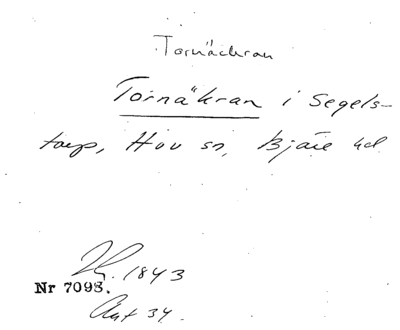 Tornäckran
Tornäkran i Segels-
torp, Hov sn, Bjäre hd
1843
Nr 7098.
Akt 34.